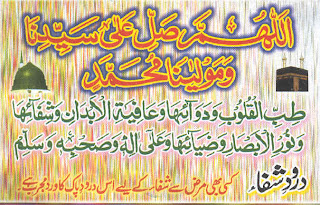 اَللّٰهُمَّ صَلِّ عَلٰى سَيِّدِنَا
وَمَوْلٰينَا مُحَمَّدٍ
طِبِّ الْقُلُوْبِ وَدَوَآئِهَا وَعَافِيَةِ الْاَبْدَانِ وَشِفَآئِهَا
وَنُوْرِ الْاَبْصَارِ وَضِيَآئِهَا وَعَلٰى اٰلِهٖ وَصَحْبِهٖ وَسَلِّمْ
درود شفاء
کسی بھی مرض سے شفاء کے لیے اس درود پاک کا ورد مجرب ہے۔